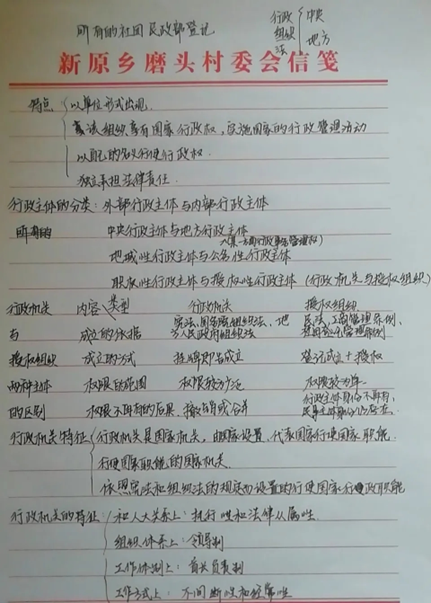 所有的社团民政部登记
行政组织法 中央 地方
新原乡磨头村委会信笺
特点 以单位形式出现
享有国家行政权,实施国家的行政管理活动
以自己的名义行使行政权
独立承担法律责任.
行政主体的分类:外部行政主体与内部行政主体
中央行政主体与地方行政主体
地域性行政主体与公务性行政主体
职权性行政主体与授权性行政主体(行政机关与授权组织)
行政机关 内容 类型 行政机关 授权组织
与 成立的依据 宪法、国务院组织法、地方人民政府组织法
授权组织 成立的方式 挂牌即告成立 登记成立+授权
两种主体 权限的范围 权限较为广泛 权限较为单
的区别 权限不再有的后果 撤销或合并 行政主体身份不再有,民事主体身份仍存在.
行政机关特征 行政机关是国家机关,由国家设置,代表国家行使国家职能.
行使国家职能的国家机关.
依照宪法和组织法的规定而设置的行使国家行政职能
行政机关的特征 和人大关系上:执行性和法律从属性.
组织体系上:领导制
工作体制上:首长负责制
工作方式上:不间断性和经常性